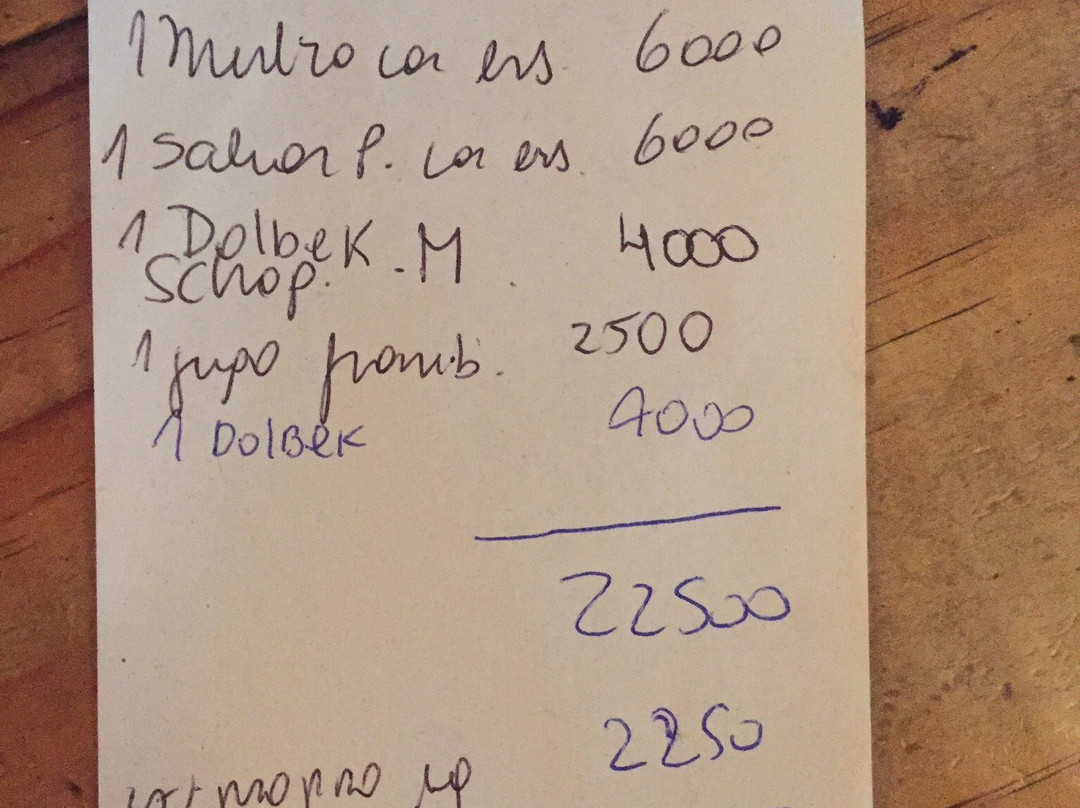 1 Merlzo con ens. 6000
1 Salmon P. con ens. 6000
1 Dolbek
Schop. . M. 4000
1 jugo framb. 2500
1 DolBek 4000
22500
2250